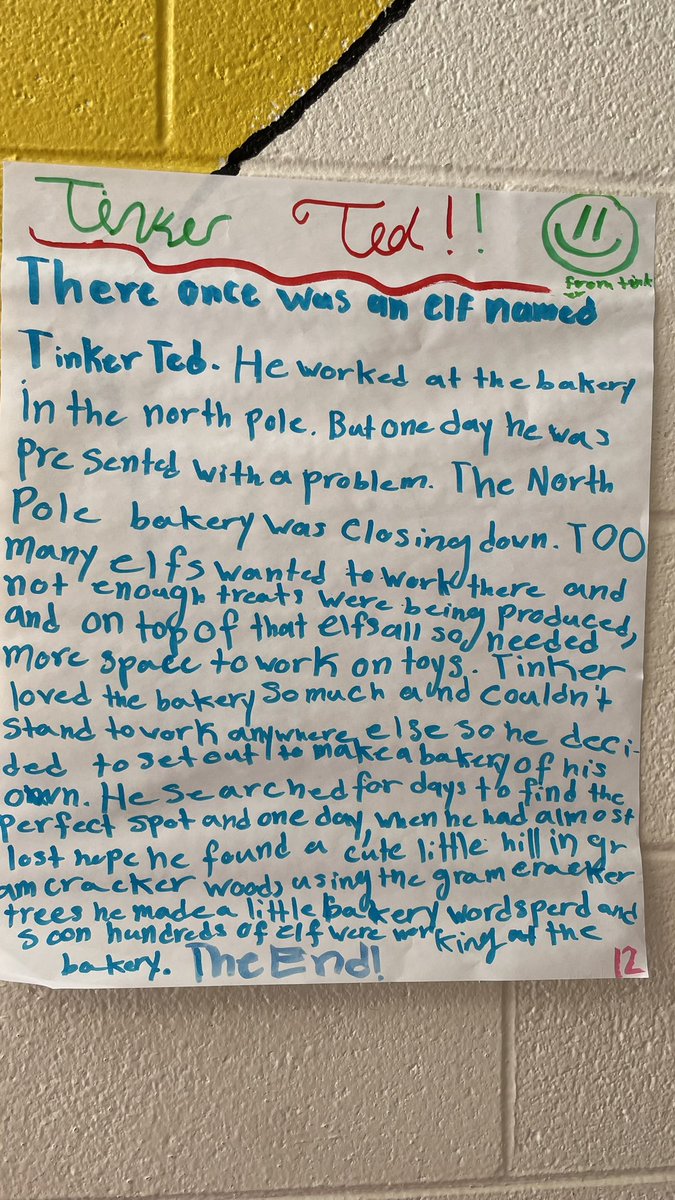 Tinker Ted!!
from tink
er
There once was an elf named
Tinker Ted. He worked at the bakery
in the north pole. But one day he was
presented with a problem. The North
Pole bakery was closing down. TOO
many elfs wanted to work there and
not enough treats were being produced,
and on top of that elfs all so needed
more space to work on toys. Tinker
loved the bakery so much and couldn't
stand to work anywhere else so he deci-
ded to set out to make a bakery of his
own. He searched for days to find the
perfect spot and one day, when he had almost
lost hope he found a cute little hill in gr
am cracker woods using the gram cracker
trees he made a little bakery word sperd and
soon hundreds of elf were working at the
bakery. The End!
12